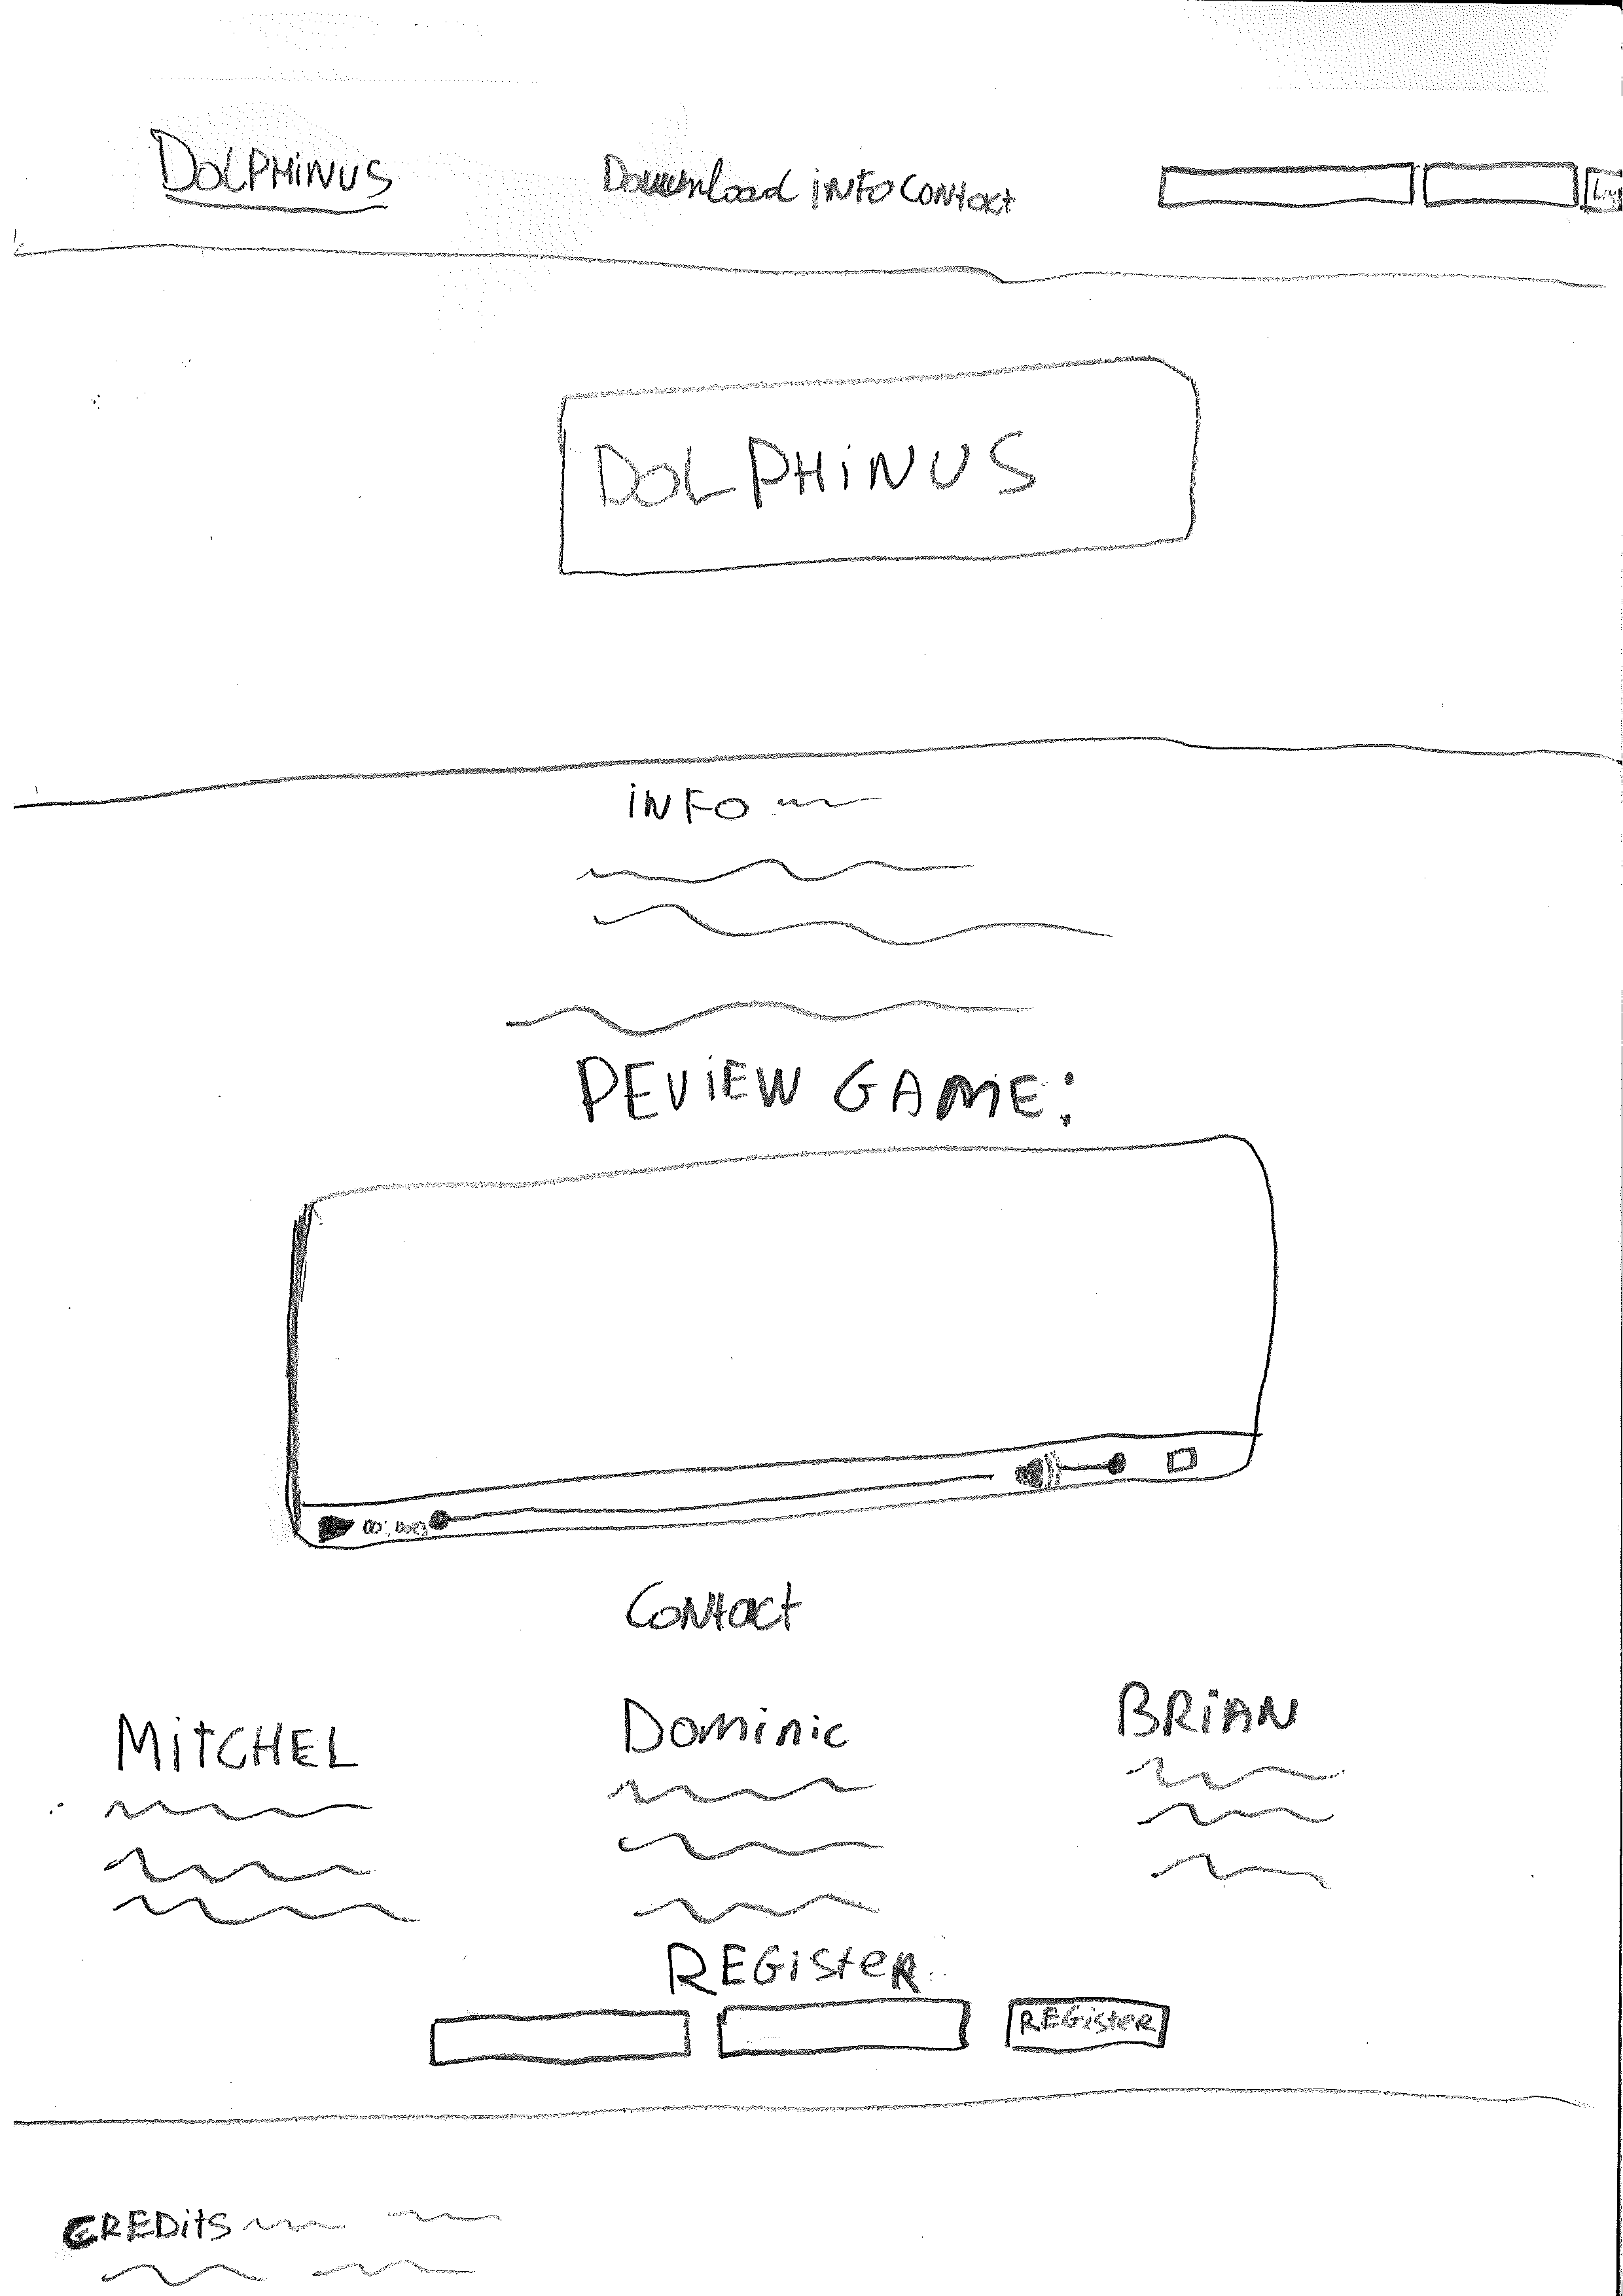 DOLPHINUS Download INFO CONtact
DOLPHINUS
INFO
PEVIEW GAME:
CONtact
MitCHEL Dominic BRIAN
REGisteR
REGisteR
CREDits